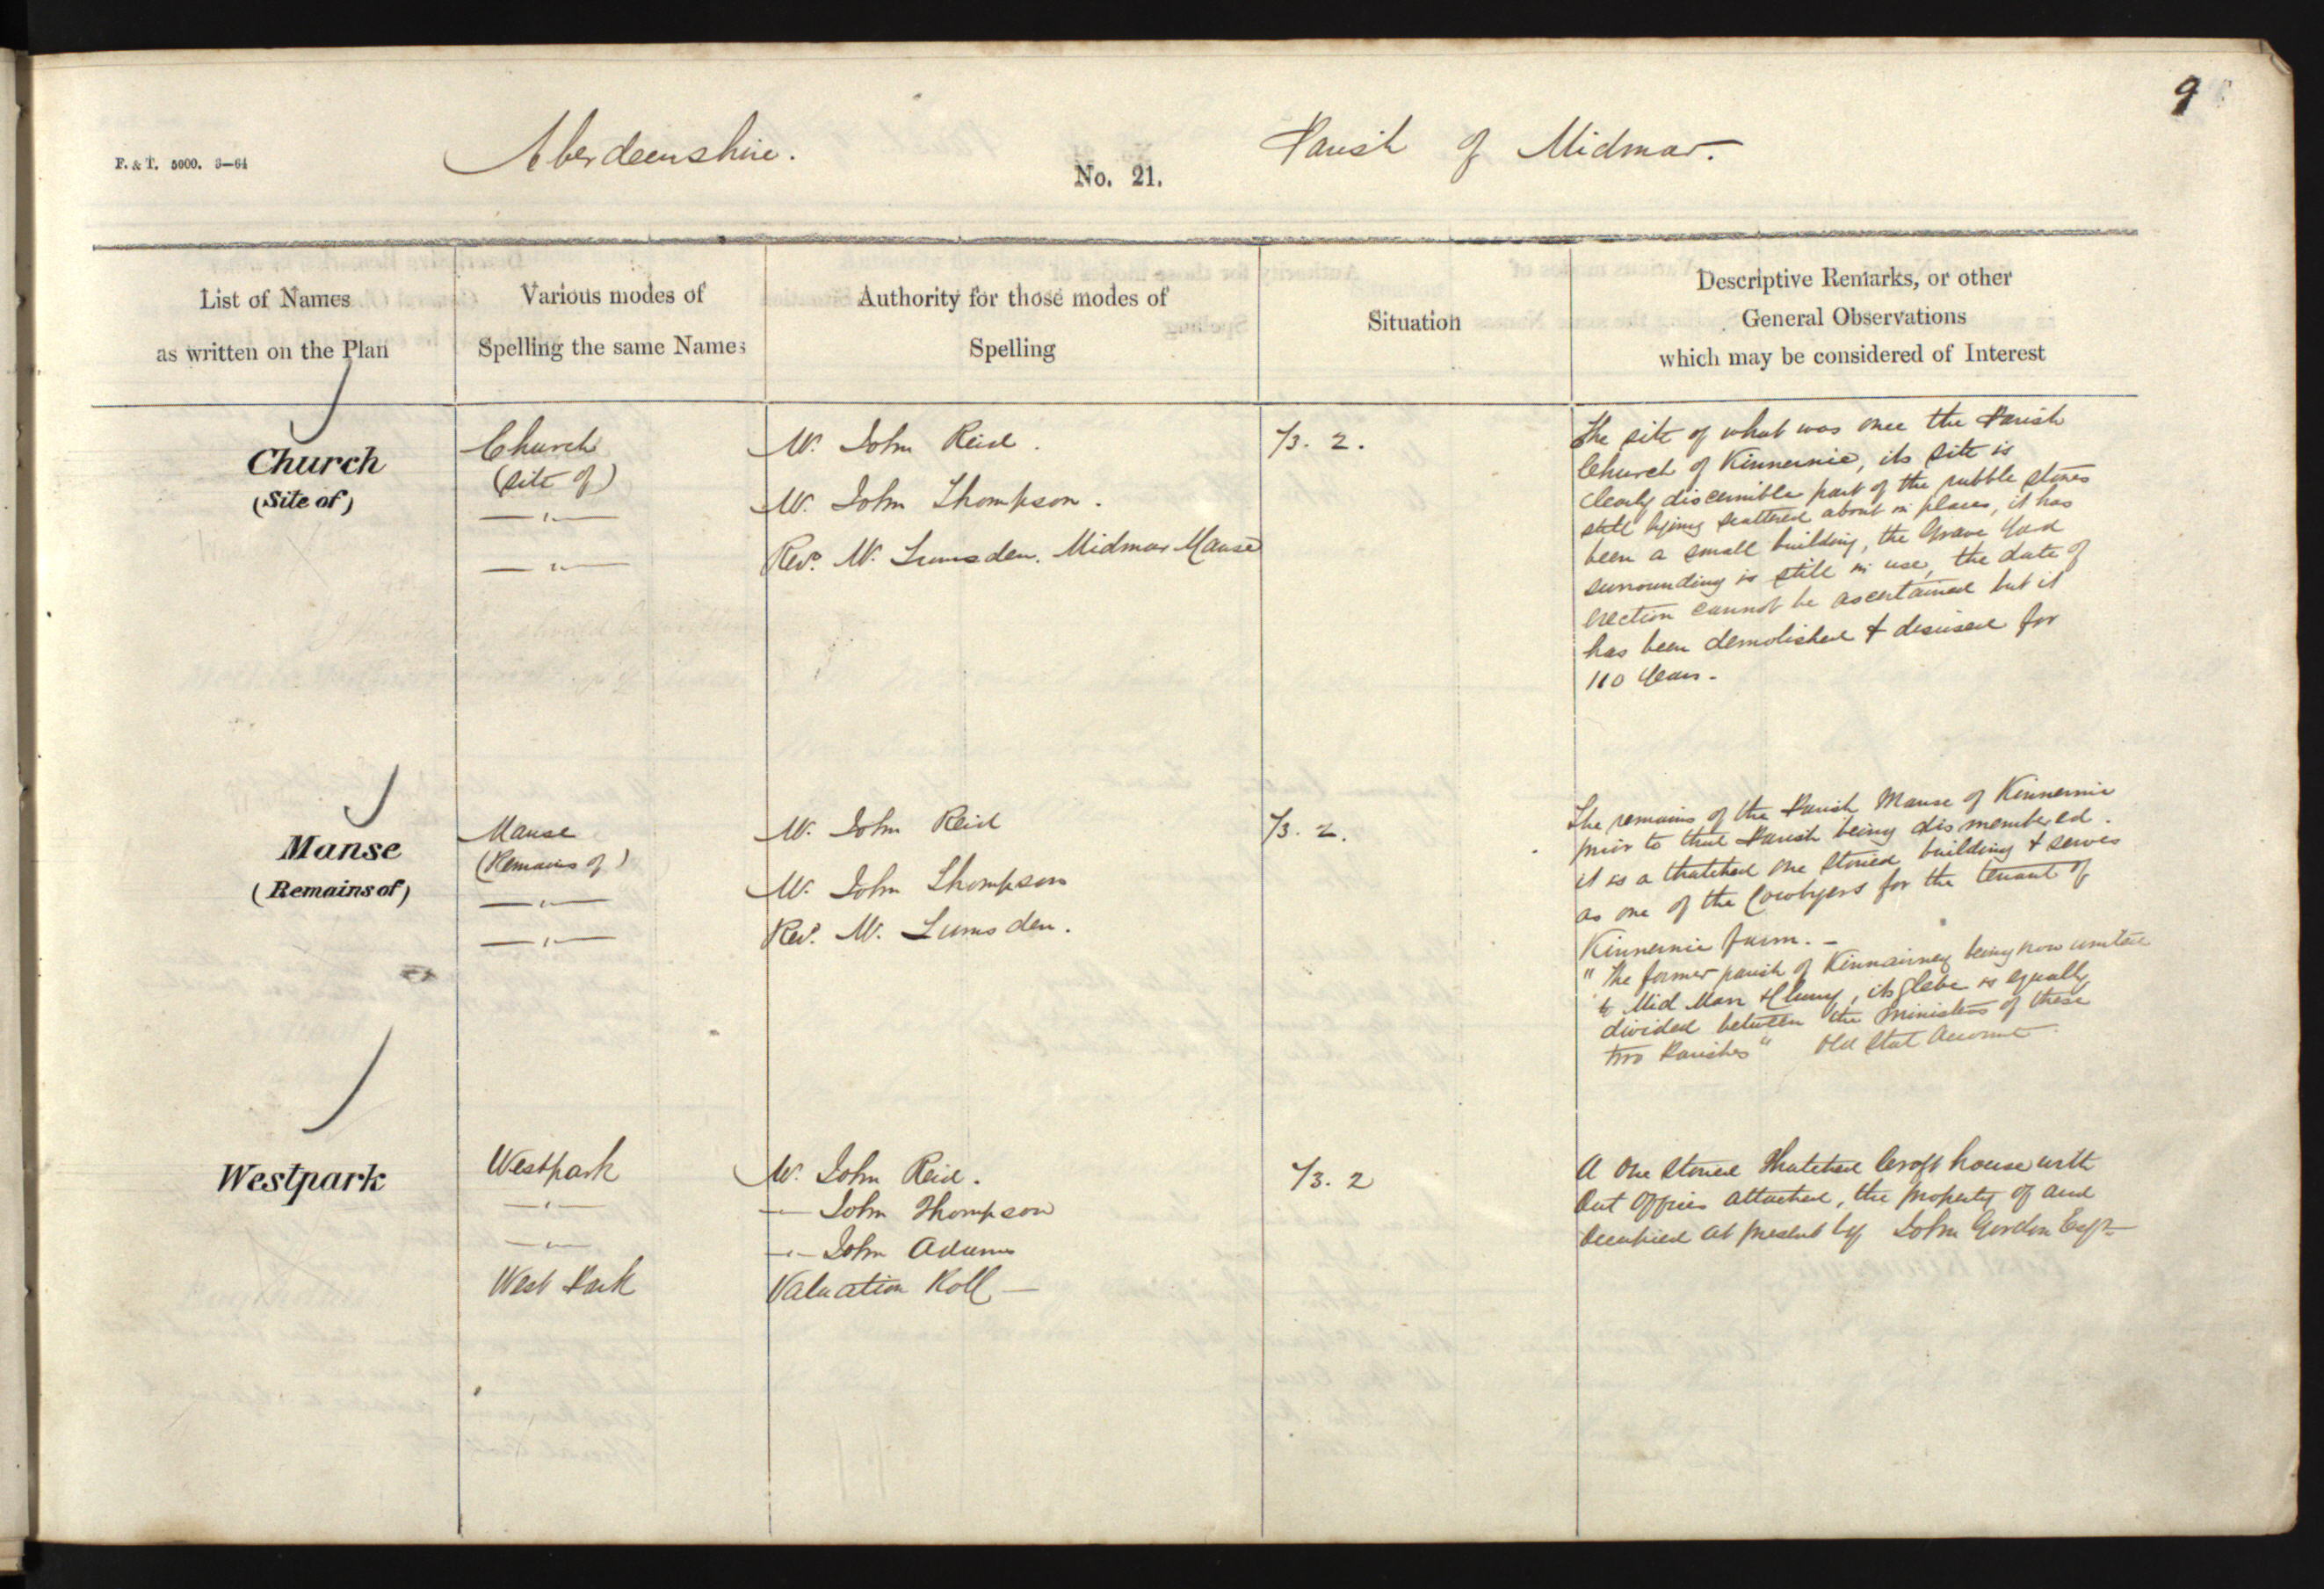 9
F. & T. 5000. 3—64
Aberdeenshire.
No. 21.
Parish of Midmar.
List of Names
as written on the Plan
Various modes of
Spelling the same Names
Authority for those modes of
Spelling
Situation
Descriptive Remarks, or other
General Observations
which may be considered of Interest
Church
(Site of)
Church
(Site of)
—〃—
—〃—
Mr. John Reid.
Mr. John Thompson.
Revd. Mr. Lumsden. Midmar Manse
73. 2.
The site of what was once the Parish
Church of Kinnernie, its site is
clearly discernible part of the rubble stones
still lying scattered about in places, it has
been a small building, the Grave Yard
surrounding is still in use, the date of
erection cannot be ascertained but it
has been demolished & disused for
110 Years.
Manse
(Remains of)
Manse
(Remains of)
—〃—
—〃—
Mr. John Reid
Mr. John Thompson
Revd. Mr. Lumsden.
73. 2.
The remains of the Parish Manse of Kinnernie
prior to that Parish being dismembered.
it is a thatched one storied building & serves
as one of the Cowbyers for the tenant of
Kinnernie farm. —
"The former parish of Kinnairney being now united
to Mid Marr & Cluny, its glebe is equally
divided between the ministers of these
two Parishes" Old Stat Account
Westpark
Westpark
—〃—
—〃—
West Park
Mr. John Reid.
—〃— John Thompson
—〃— John Adams
Valuation Roll —
73. 2
A One Storied Thatched Croft house with
Out Offices attached, the property of and
Occupied at present by John Gordon Esqr.